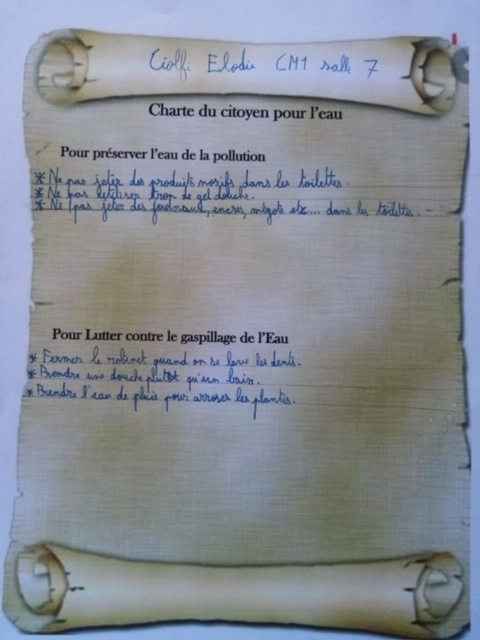 Ciolfi Elodie CM1 salle 7
Charte du citoyen pour l'eau
Pour préserver l'eau de la pollution
* Ne pas jeter des produits nosifs dans les toilettes.
* Ne pas utiliser trop de gel douche.
* Ne pas jeter des journaux, encres, mégots etc... dans les toilettes.
Pour Lutter contre le gaspillage de l'Eau
* Fermer le robinet quand on se lave les dents.
* Prendre une douche plutôt qu'un bain.
* Prendre l'eau de pluie pour arroser les plantes.